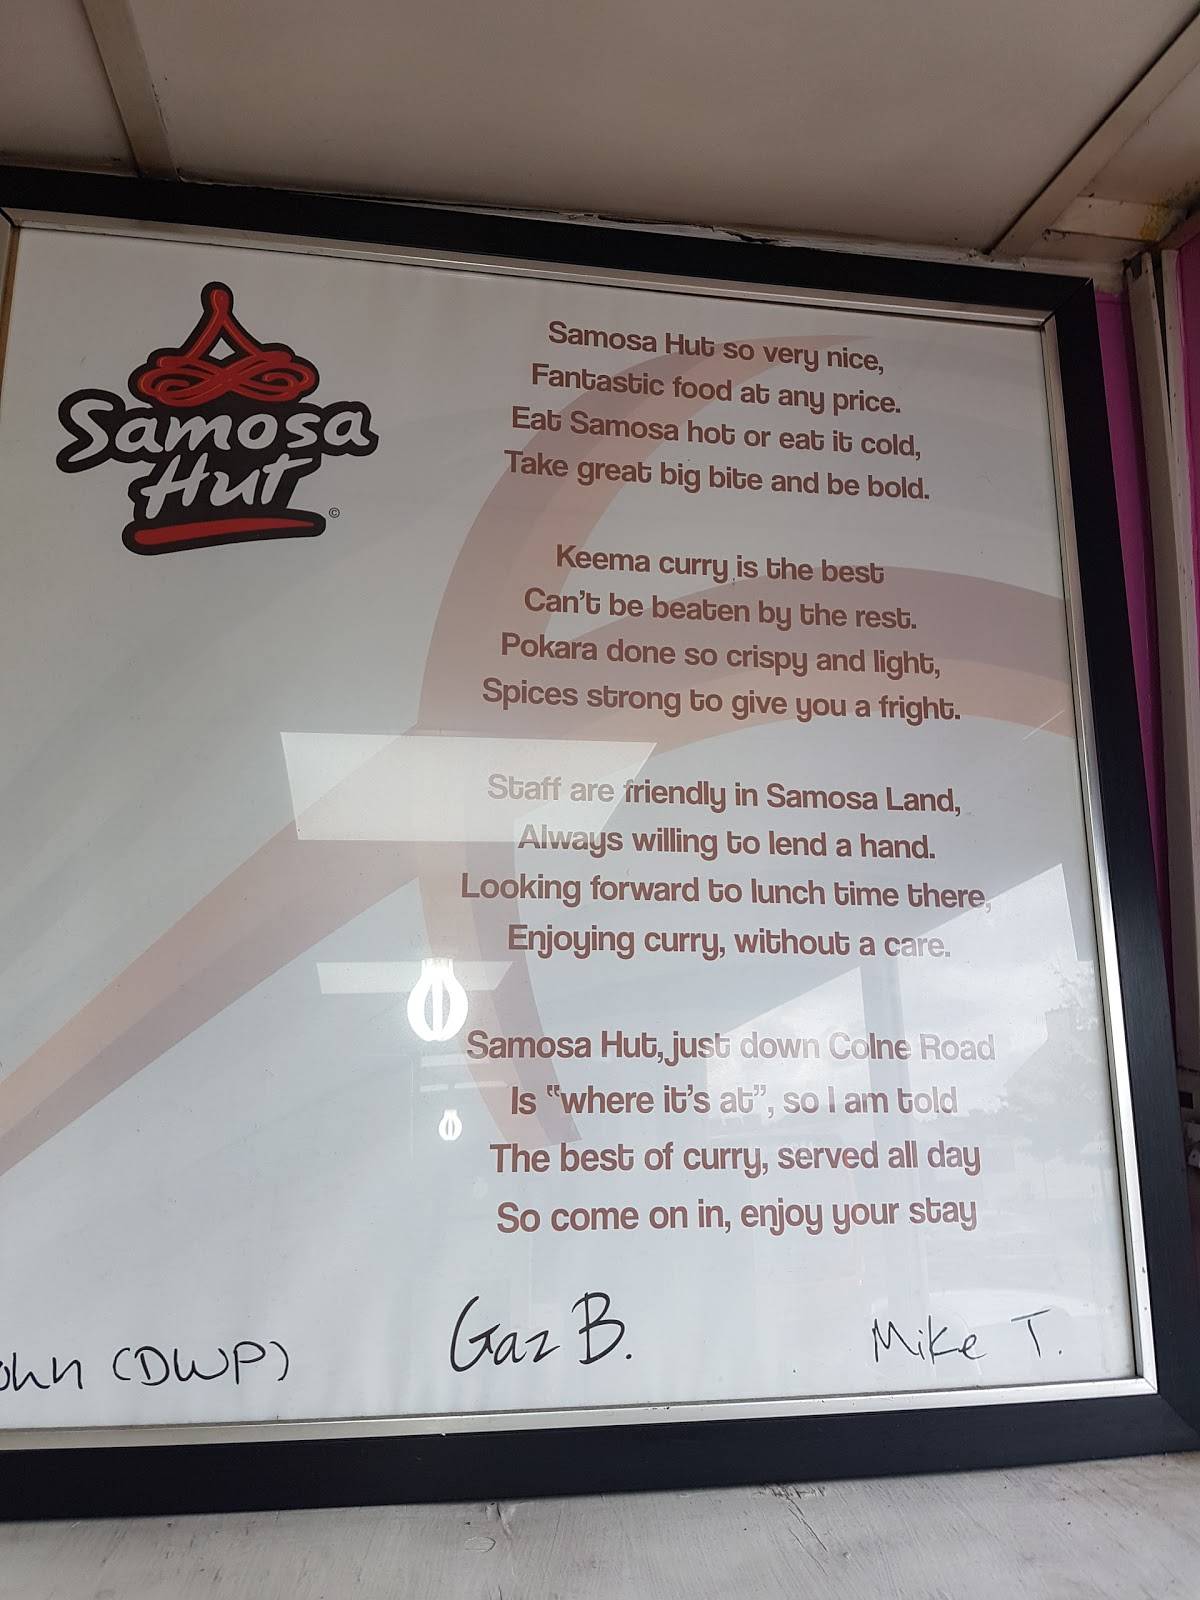 Samosa
Hut
©
Samosa Hut so very nice,
Fantastic food at any price.
Eat Samosa hot or eat it cold,
Take great big bite and be bold.
Keema curry is the best
Can't be beaten by the rest.
Pokara done so crispy and light,
Spices strong to give you a fright.
Staff are friendly in Samosa Land,
Always willing to lend a hand.
Looking forward to lunch time there,
Enjoying curry, without a care.
Samosa Hut, just down Colne Road
Is “where it's at”, so I am told
The best of curry, served all day
So come on in, enjoy your stay
(DWP)
Gaz B.
Mike T.